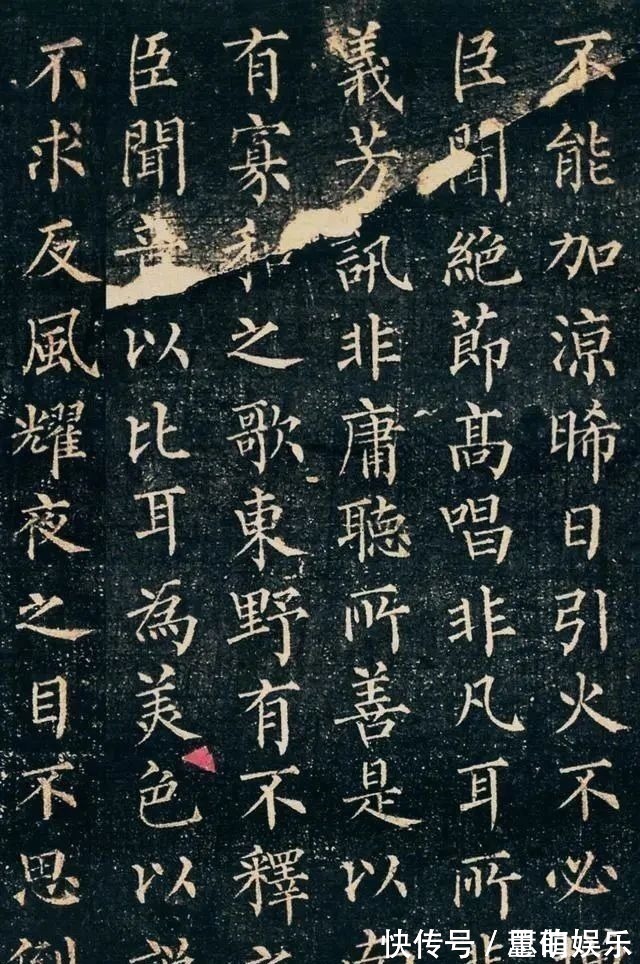 不能加涼晞日引火不必
臣聞絶莭髙唱非凡耳所
義芳訊非庸聽所善是以
有寡和之歌東野有不釋之
臣聞音以比耳為美色以
不求反風耀夜之目不思倒
快传号/萌娱乐